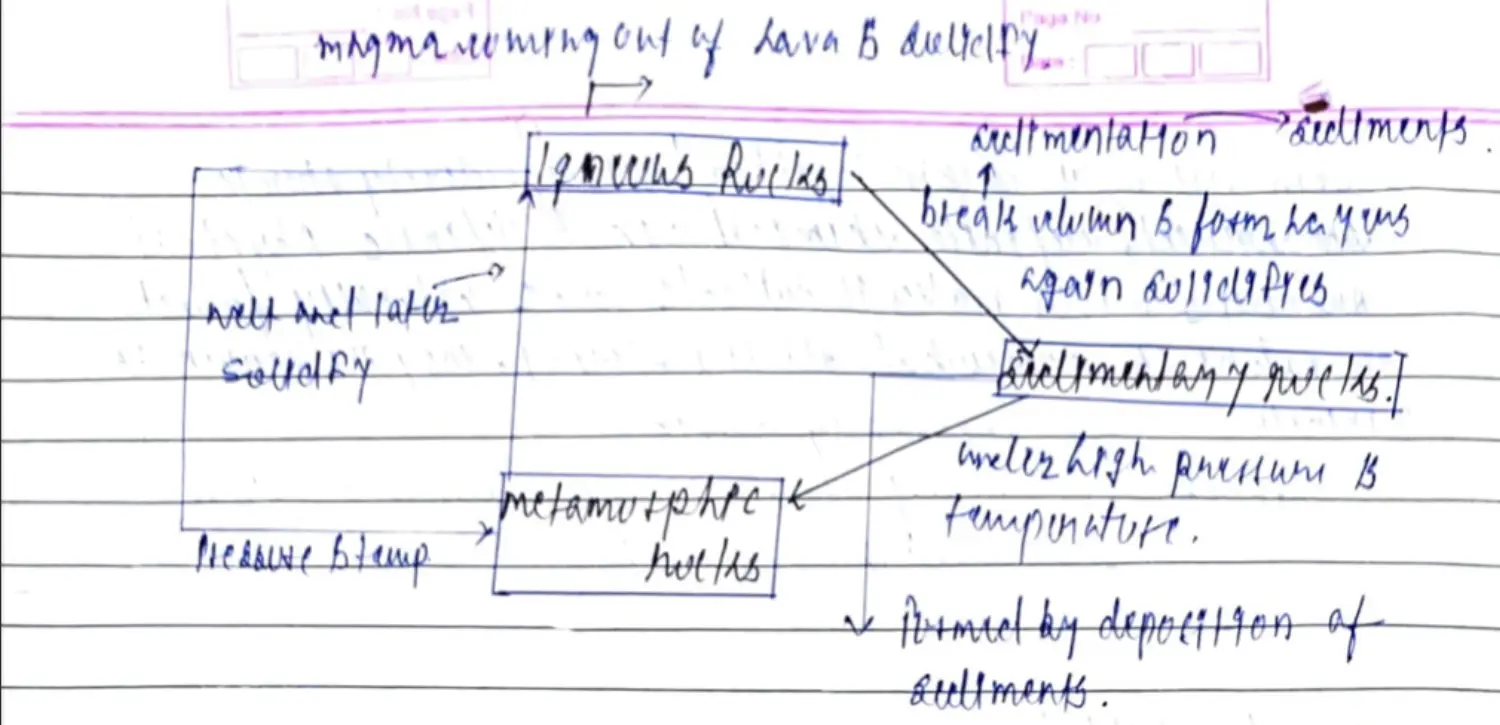 Page No
magma coming out of Lava & solidify
sedimentation → sediments.
Igneous Rocks
break down & form layers
again solidifies
melt and later
solidify
sedimentary rocks.
under high pressure &
temperature.
metamorphic
rocks
Pressure & temp
formed by deposition of
sediments.